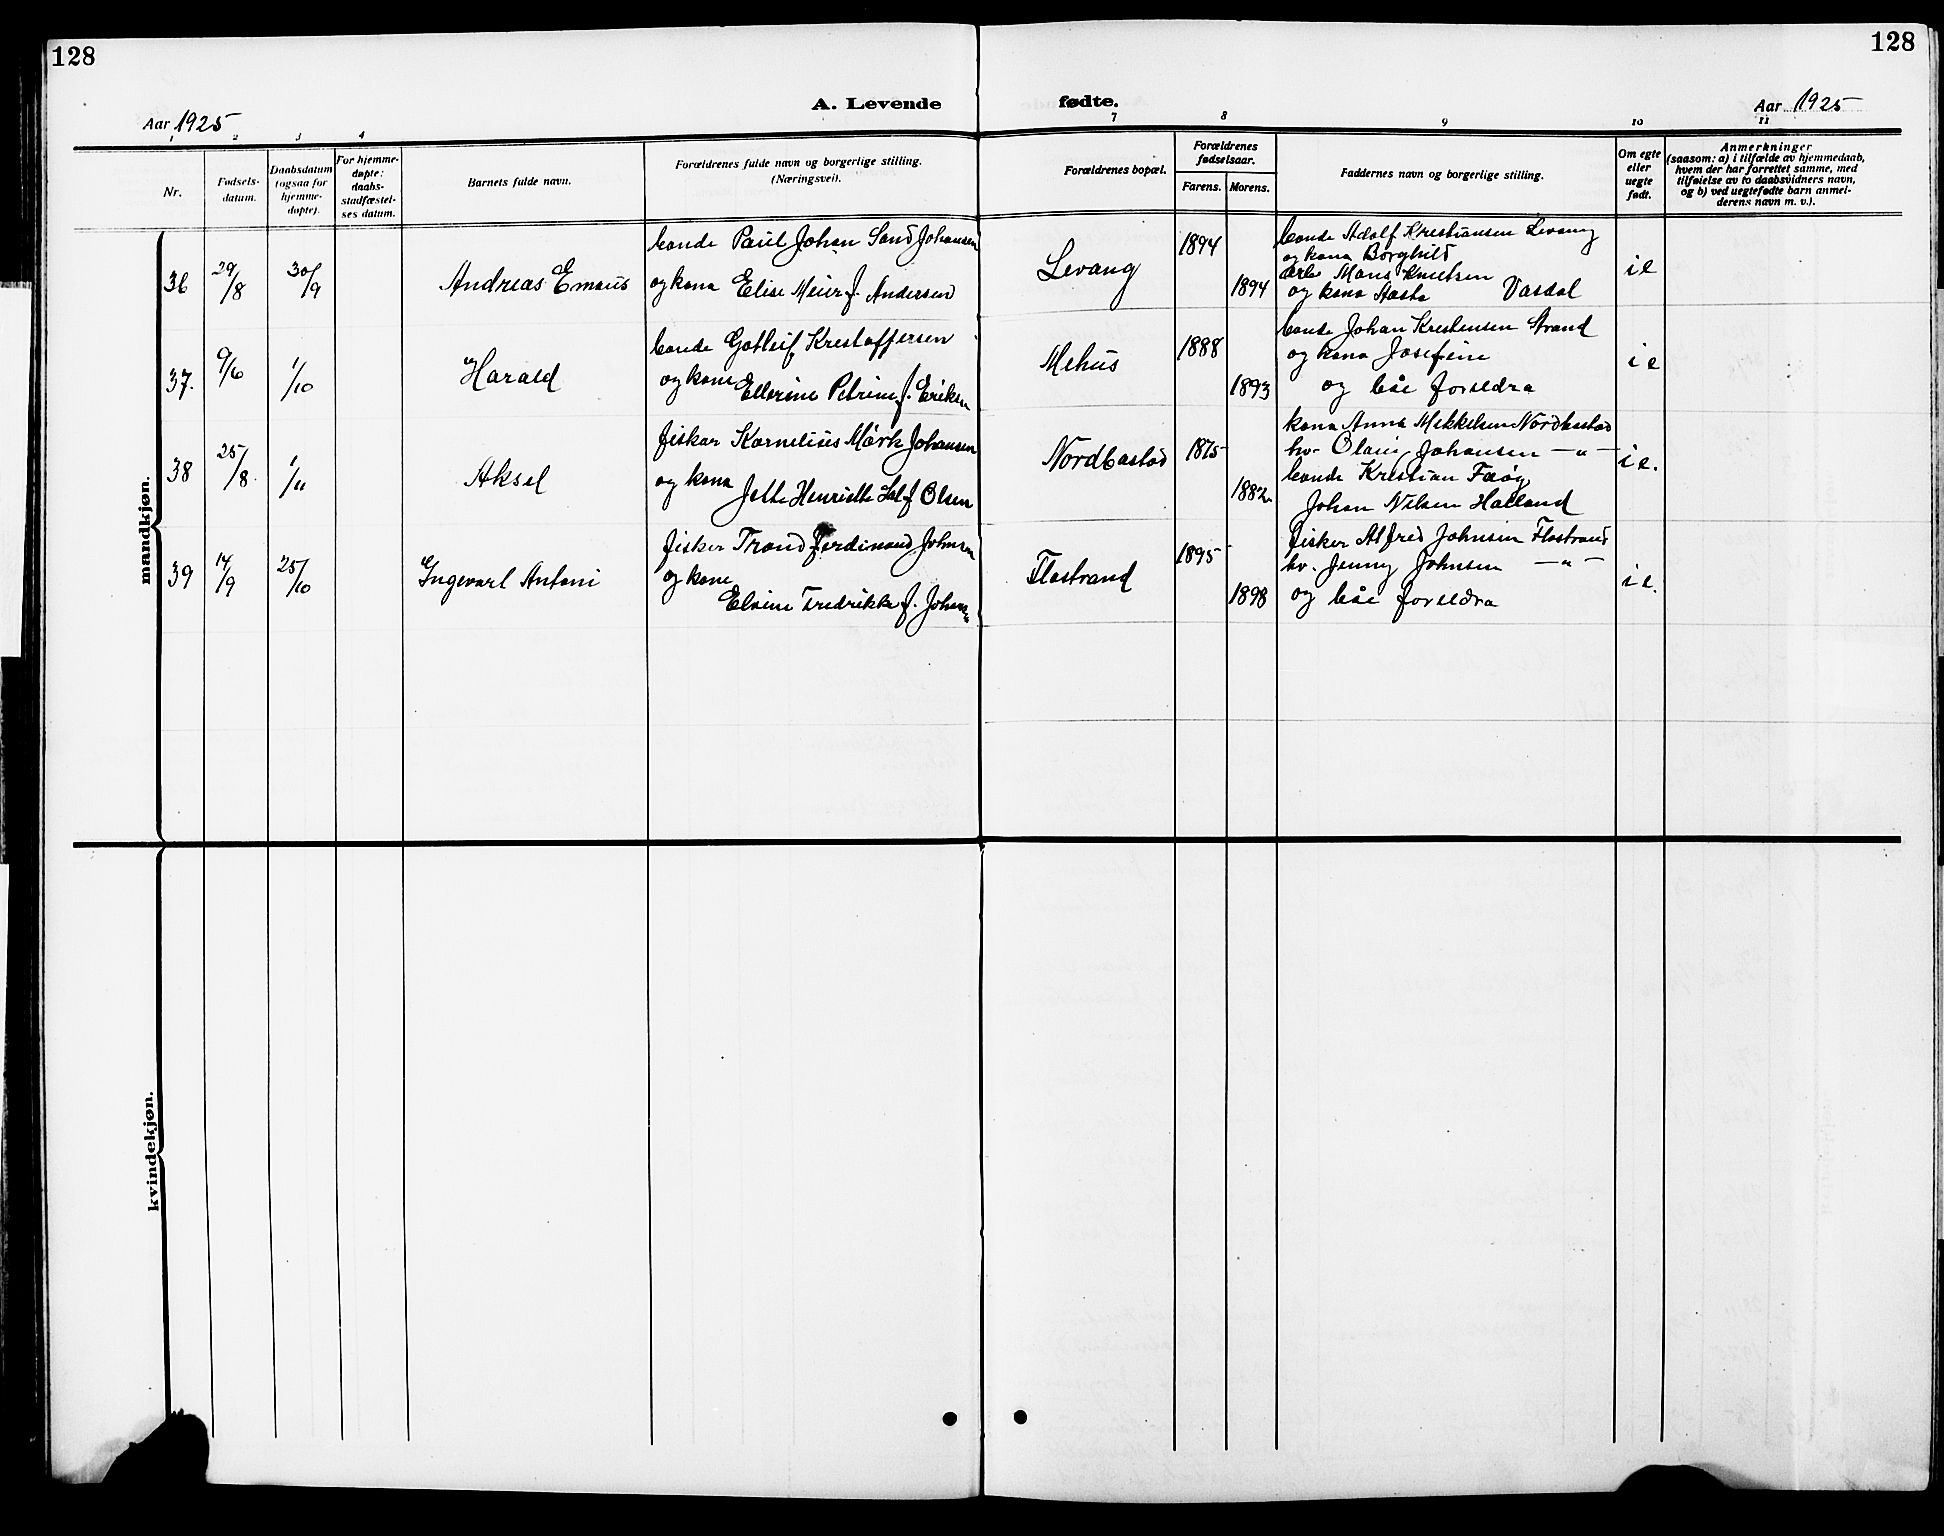 128
128
A. Levende fødte.
Aar 1925
Aar 1925
1 2 3 4 7 8 9 10 11
Nr.
Fødsels-
datum.
Daabsdatum
(ogsaa for
hjemme-
døpte).
For hjemme-
døpte:
daabs-
stadfæstel-
ses datum.
Barnets fulde navn.
Forældrenes fulde navn og borgerlige stilling.
(Næringsvei).
Forældrenes bopæl.
Forældrenes
fødselsaar.
Farens. Morens.
Faddernes navn og borgerlige stilling.
Om egte
eller
uegte
født.
Anmerkninger
(saasom: a) i tilfælde av hjemmedaab,
hvem der har forrettet samme, med
tilføielse av to daabsvidners navn,
og b) ved uegtefødte barn anmel-
derens navn m. v.).
mandkjøn.
36 29/8 30/9 Andreas Emaus
bonde Paul Johan Sand Johansen
og kona Elise Meier f. Andersen
Levang 1894 1894
bonde Adolf Kristiansen Levang
og kona Borghild
arb. Mons Knutsen
og kona Aasta Vasdal
i e
37. 9/6 1/10 Harald
bonde Gotleif Krestoffersen
og kone Ellerine Petrine f. Eriksen
Mehus 1888 1893
bonde Johan Kristensen Strand
og kona Josefine
og båe foreldra
i e
38 25/8 1/11 Aksel
fiskar Kornelius Mørk Johansen
og kona Jette Henriette f Olsen
Nordbastad 1875 1882
kona Anna Mikkelsen Nordbastad
hv. Olain Johansen — " —
bonde Kristian
Johan Nilsen Halland
i e.
39 14/9 25/10 Ingevart Antoni
fisker Trond Ferdinand Johnsen
og kone
Elvine Fredrikke f. Johnsen
Flostrand 1895 1898
fisker Alfred Johnsen Flostrand
hv. Jenny Johnsen — " —
og båe foreldra
i e.
kvindekjøn.